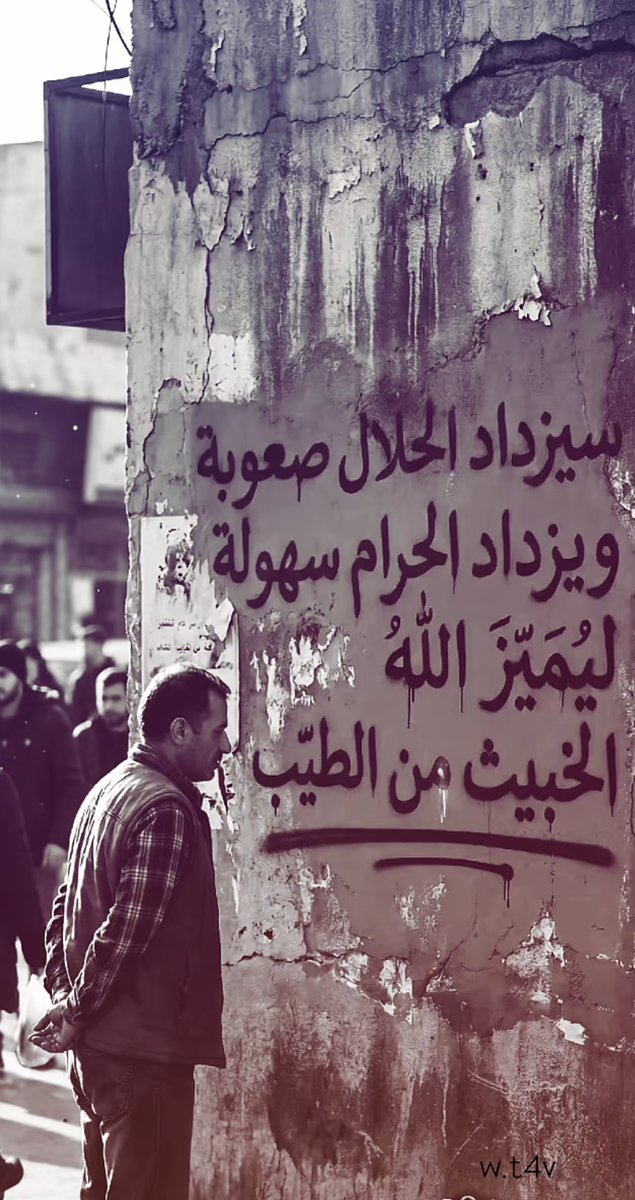 سيزداد الحلال صعوبة
ويزداد الحرام سهولة
ليُمَيّزَ اللهُ
الخبيث من الطيّب
w.t4v